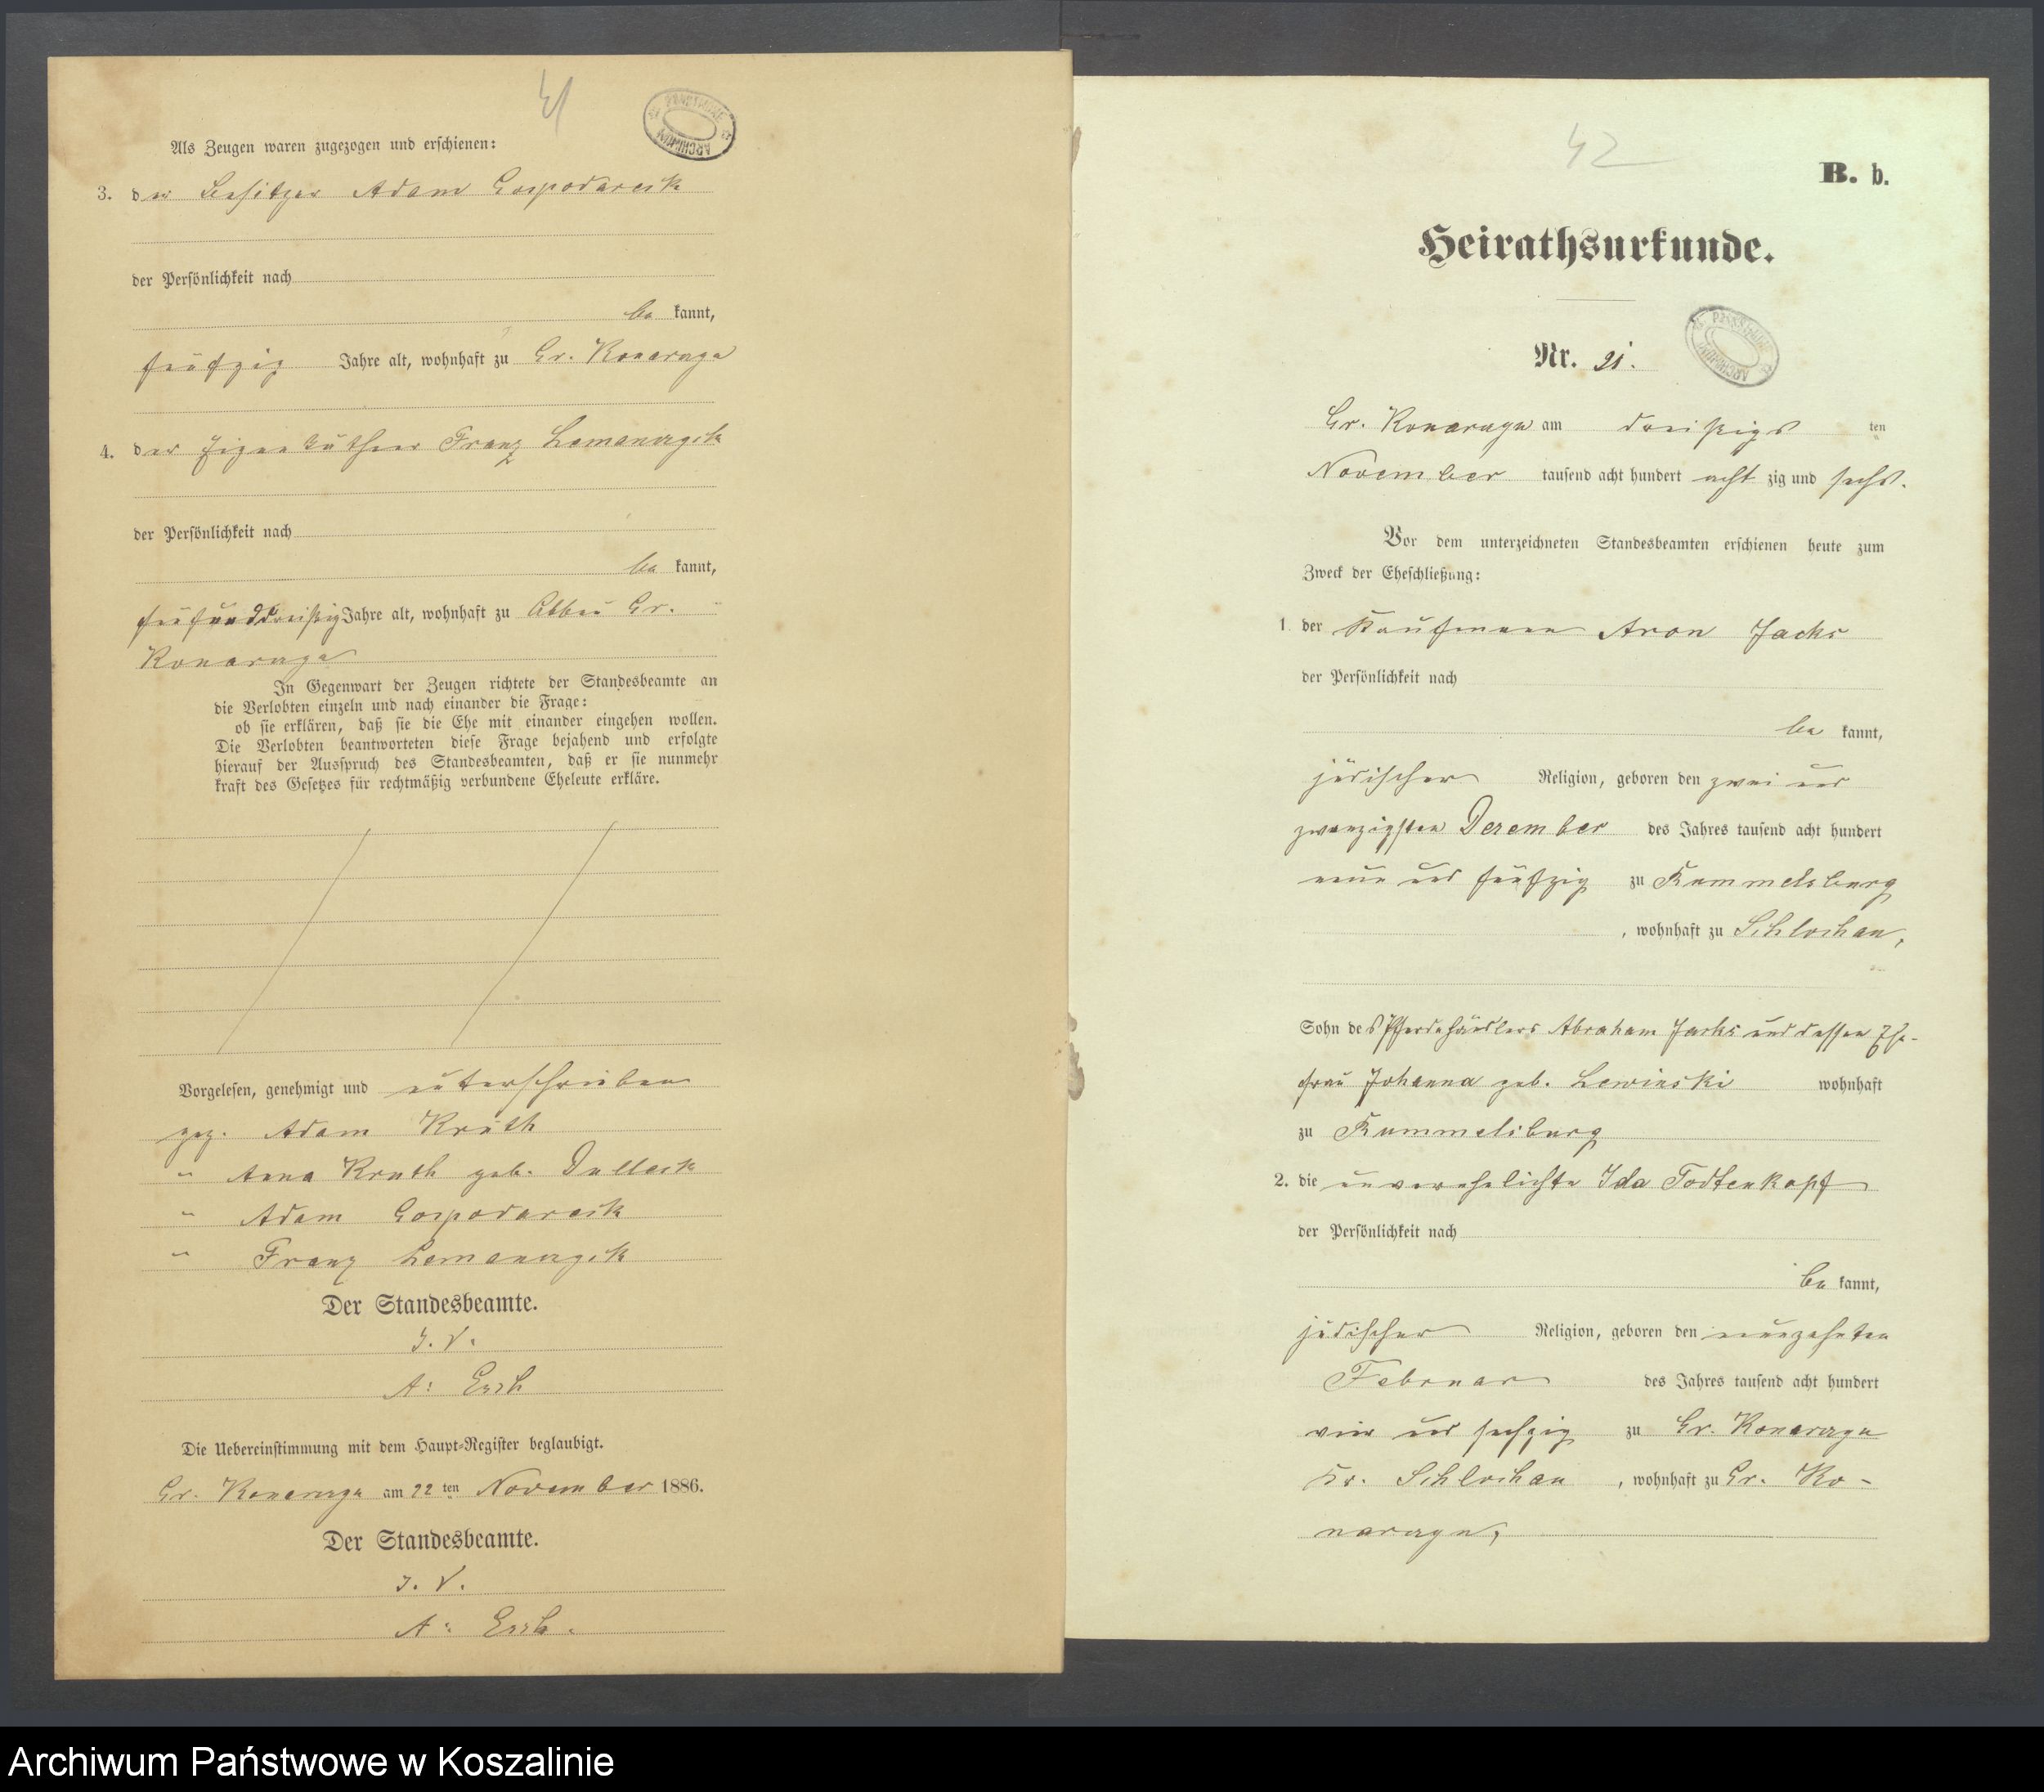 41
Als Zeugen waren zugezogen und erschienen:
3. der Besitzer Adam Gospodareck
der Persönlichkeit nach
be kannt,
fünfzig Jahre alt, wohnhaft zu Gr. Konarczyn
4. der Eigenthümer Franz Lemanczyk
der Persönlichkeit nach
be kannt,
fünfunddreißig Jahre alt, wohnhaft zu Abbau Gr.
Konarczyn
In Gegenwart der Zeugen richtete der Standesbeamte an
die Verlobten einzeln und nach einander die Frage:
ob sie erklären, daß sie die Ehe mit einander eingehen wollen.
Die Verlobten beantworteten diese Frage bejahend und erfolgte
hierauf der Ausspruch des Standesbeamten, daß er sie nunmehr
kraft des Gesetzes für rechtmäßig verbundene Eheleute erkläre.
Vorgelesen, genehmigt und unterschrieben
gez. Adam Kruth
" Anna Kruth geb. Dulleck
" Adam Gospodareck
" Franz Lemanczyk
Der Standesbeamte.
I. V.
A.
Die Uebereinstimmung mit dem Haupt-Register beglaubigt.
Gr. Konarczyn am 22 ten November 1886.
Der Standesbeamte.
I. V.
A.
42
B. b.
Heirathsurkunde.
Nr. 21.
Gr. Konarczyn am dreißigs ten
November tausend acht hundert acht zig und sechs.
Vor dem unterzeichneten Standesbeamten erschienen heute zum
Zweck der Eheschließung:
1. der Kaufmann Aron Jacks
der Persönlichkeit nach
be kannt,
jüdischer Religion, geboren den zwei und
zwanzigsten Dezember des Jahres tausend acht hundert
neun und fünfzig zu Rummelsburg
, wohnhaft zu Schlochau,
Sohn des Pferdehändlers Abraham Jacks und dessen Ehe-
frau Johanna geb. Lewinski wohnhaft
zu Rummelsburg
2. die unverehelichte Ida Todtenkopf
der Persönlichkeit nach
be kannt,
jüdischer Religion, geboren den neunzehnten
Februar des Jahres tausend acht hundert
vier und sechzig zu Gr. Konarczyn
Kr. Schlochau , wohnhaft zu Gr. Ko-
narczyn,
Archiwum Państwowe w Koszalinie